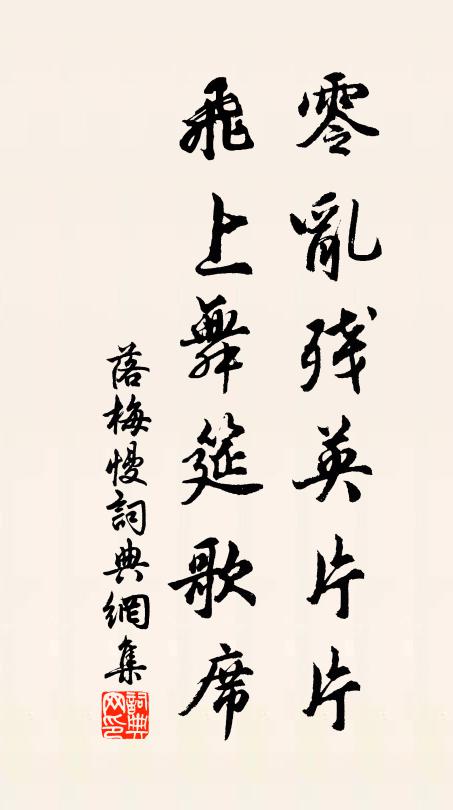 零亂残英片片
飛上舞筵歌席
落梅慢詞典網集
詞典网印